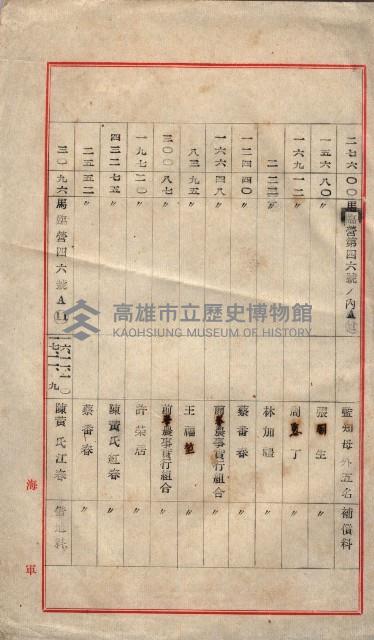 二七六〇〇 馬臨營第四六號ノ內A 藍知母外五名 補償料
一五六八〇 〃 張 生 〃
一六九一二 〃 周 丁 〃
二二二 〃 林加禮 〃
一二四四〇 〃 蔡番春 〃
一六六四八 〃 前峯農事實行組合 〃
八三九五 〃 王福 〃
三〇〇八七 〃 前峯農事實行組合 〃
一九七二〇 〃 許榮居 〃
四三二七五 〃 陳黃氏紅春 〃
二五五二 〃 蔡番春 〃
三〇九六 馬臨營四六號A 陳黃氏江春 借地料
海軍
高雄市立歷史博物館
KAOHSIUNG MUSEUM OF HISTORY